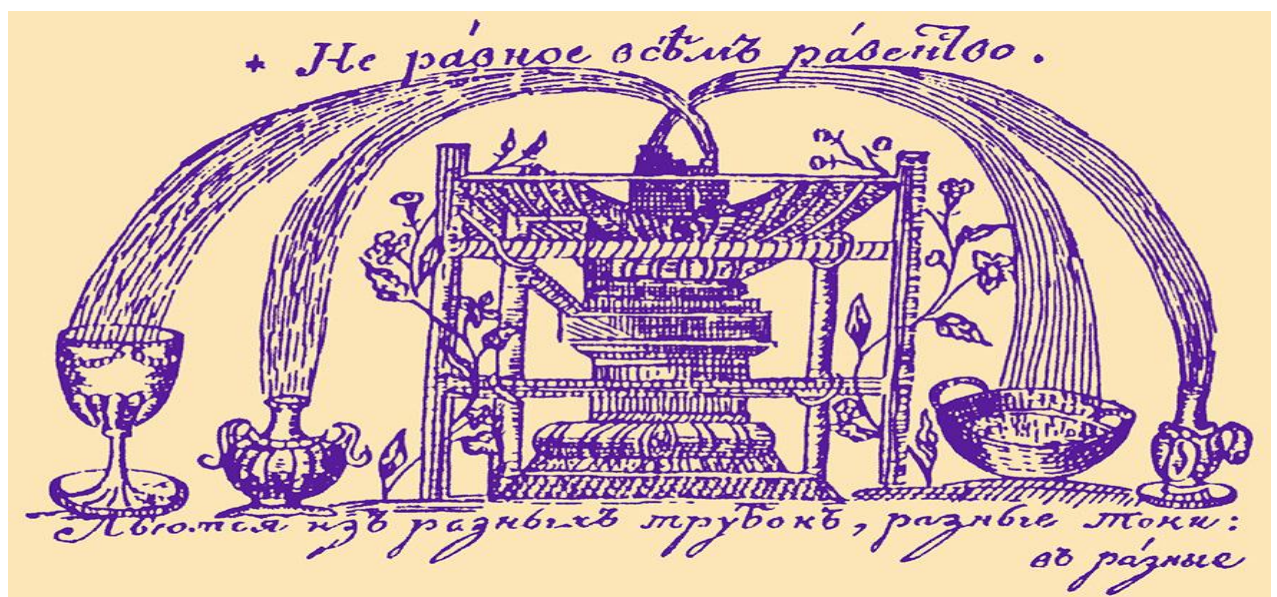 * Не ра́вное всѣ́мъ ра́венство .
Льются изъ разныхъ трубокъ, разные токи:
въ ра́зные